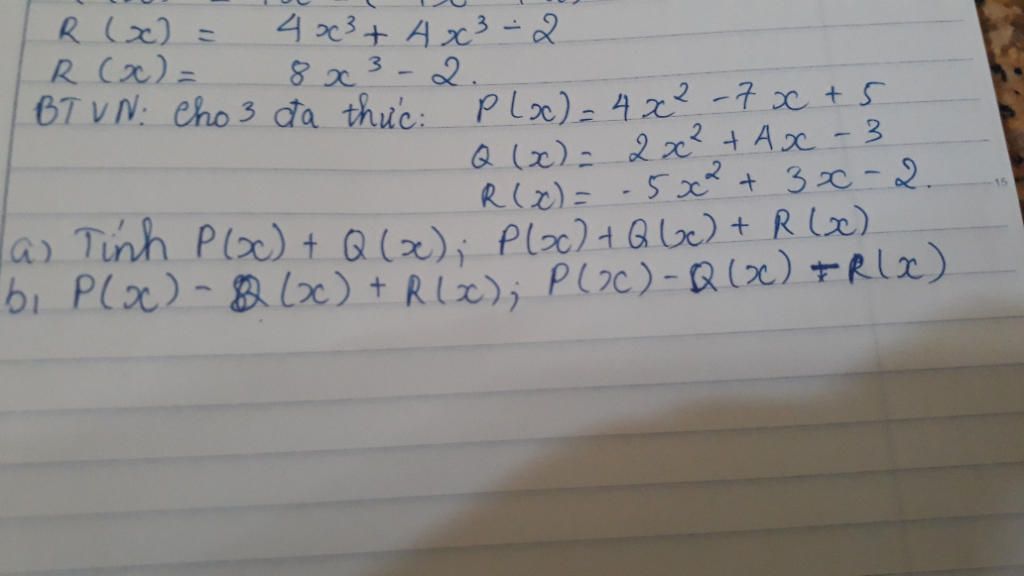 R(x) = 4x³ + 4x³ - 2
R(x) = 8x³ - 2.
BTVN: Cho 3 đa thức: P(x) = 4x² - 7x + 5
Q(x) = 2x² + 4x - 3
R(x) = -5x² + 3x - 2.
15
a) Tính P(x) + Q(x); P(x) + Q(x) + R(x)
b, P(x) - Q(x) + R(x); P(x) - Q(x) - R(x)